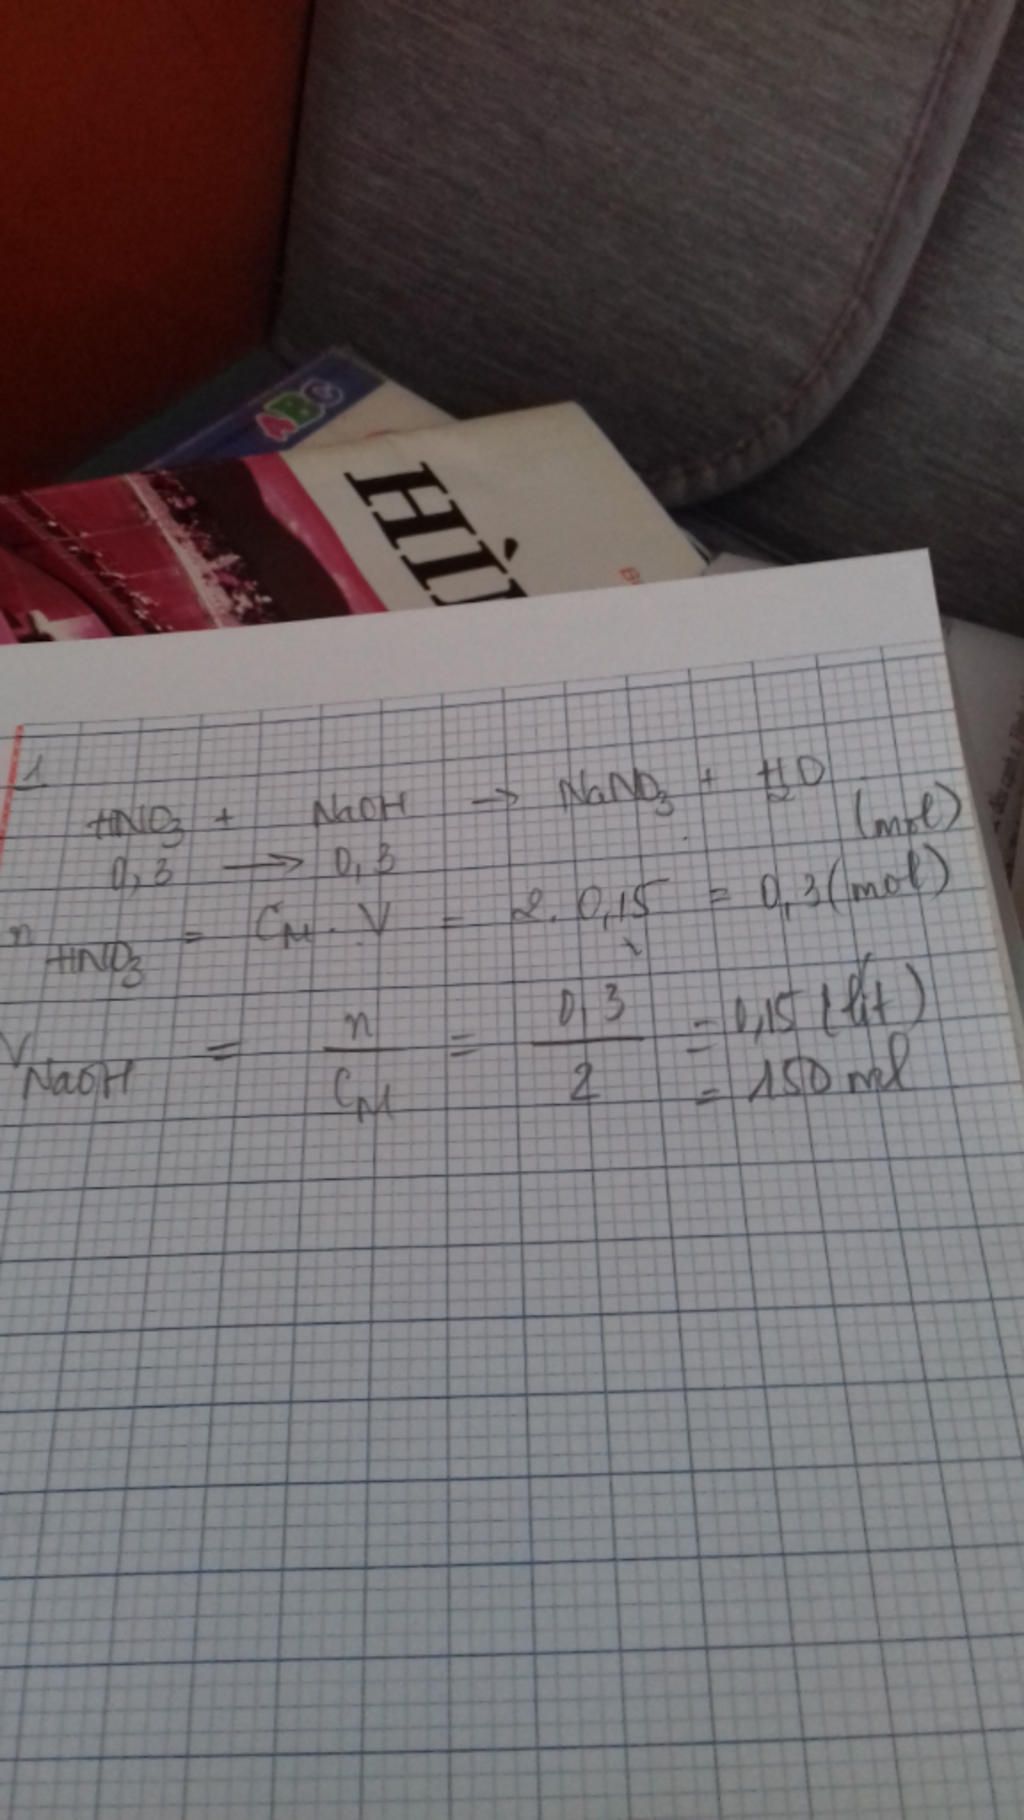 ABC
HÌ
1
HNO3 + NaOH → NaNO3 + H2O
0,3 → 0,3 (mol)
n HNO3 = CM . V = 2. 0,15 = 0,3 (mol)
V NaOH = n / CM = 0,3 / 2 = 0,15 (lít)
= 150 ml